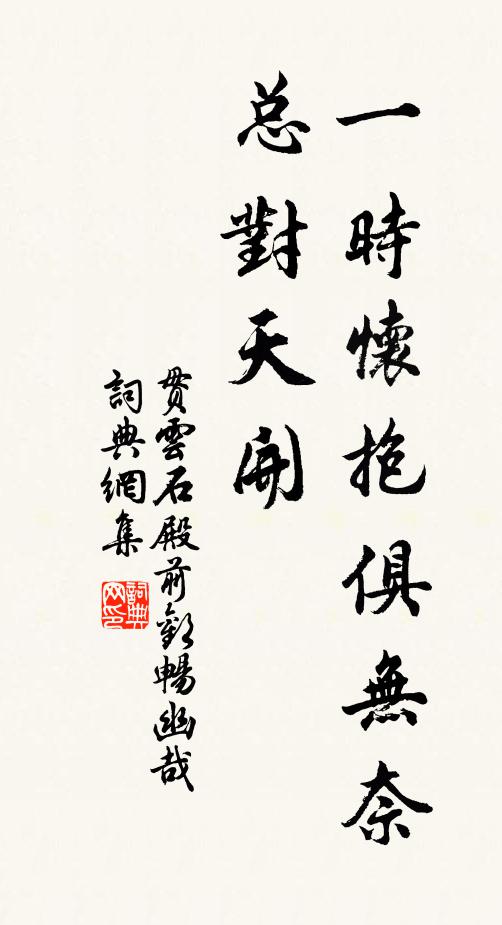 一時懷抱俱無奈
总對天開
贯雲石殿前歡暢幽哉
詞典網集
詞典网印